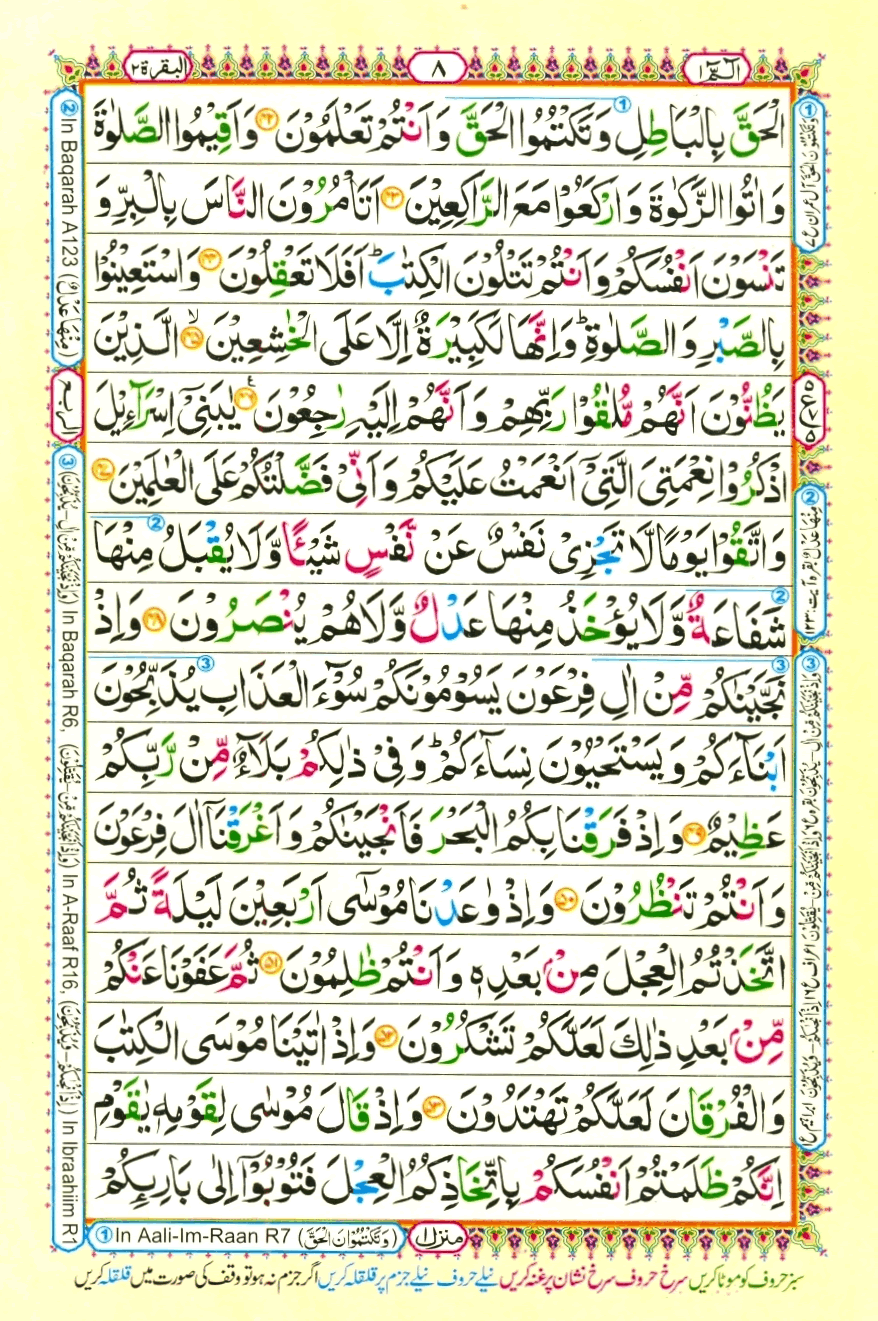 الٓمّٓ ١
٨
البقرة ٢
الْحَقَّ بِالْبَاطِلِ وَتَكْتُمُوا الْحَقَّ وَاَنْتُمْ تَعْلَمُوْنَ ﴿٤٢﴾ وَاَقِيْمُوا الصَّلٰوةَ
وَاٰتُوا الزَّكٰوةَ وَارْكَعُوْا مَعَ الرّٰكِعِيْنَ ﴿٤٣﴾ اَتَاْمُرُوْنَ النَّاسَ بِالْبِرِّ وَ
تَنْسَوْنَ اَنْفُسَكُمْ وَاَنْتُمْ تَتْلُوْنَ الْكِتٰبَ ؕ اَفَلَا تَعْقِلُوْنَ ﴿٤٤﴾ وَاسْتَعِيْنُوْا
بِالصَّبْرِ وَالصَّلٰوةِ ؕ وَاِنَّهَا لَكَبِيْرَةٌ اِلَّا عَلَى الْخٰشِعِيْنَ ﴿٤٥﴾ۙ الَّذِيْنَ
يَظُنُّوْنَ اَنَّهُمْ مُّلٰقُوْا رَبِّهِمْ وَاَنَّهُمْ اِلَيْهِ رٰجِعُوْنَ ﴿٤٦﴾ يٰبَنِيْٓ اِسْرَآءِيْلَ
اذْكُرُوْا نِعْمَتِيَ الَّتِيْٓ اَنْعَمْتُ عَلَيْكُمْ وَاَنِّيْ فَضَّلْتُكُمْ عَلَى الْعٰلَمِيْنَ ﴿٤٧﴾
وَاتَّقُوْا يَوْمًا لَّا تَجْزِيْ نَفْسٌ عَنْ نَّفْسٍ شَيْـًٔا وَّلَا يُقْبَلُ مِنْهَا
شَفَاعَةٌ وَّلَا يُؤْخَذُ مِنْهَا عَدْلٌ وَّلَا هُمْ يُنْصَرُوْنَ ﴿٤٨﴾ وَاِذْ
نَجَّيْنٰكُمْ مِّنْ اٰلِ فِرْعَوْنَ يَسُوْمُوْنَكُمْ سُوْٓءَ الْعَذَابِ يُذَبِّحُوْنَ
اَبْنَآءَكُمْ وَيَسْتَحْيُوْنَ نِسَآءَكُمْ ؕ وَفِيْ ذٰلِكُمْ بَلَآءٌ مِّنْ رَّبِّكُمْ
عَظِيْمٌ ﴿٤٩﴾ وَاِذْ فَرَقْنَا بِكُمُ الْبَحْرَ فَاَنْجَيْنٰكُمْ وَاَغْرَقْنَآ اٰلَ فِرْعَوْنَ
وَاَنْتُمْ تَنْظُرُوْنَ ﴿٥٠﴾ وَاِذْ وٰعَدْنَا مُوْسٰٓى اَرْبَعِيْنَ لَيْلَةً ثُمَّ
اتَّخَذْتُمُ الْعِجْلَ مِنْۢ بَعْدِهٖ وَاَنْتُمْ ظٰلِمُوْنَ ﴿٥١﴾ ثُمَّ عَفَوْنَا عَنْكُمْ
مِّنْۢ بَعْدِ ذٰلِكَ لَعَلَّكُمْ تَشْكُرُوْنَ ﴿٥٢﴾ وَاِذْ اٰتَيْنَا مُوْسَى الْكِتٰبَ
وَالْفُرْقَانَ لَعَلَّكُمْ تَهْتَدُوْنَ ﴿٥٣﴾ وَاِذْ قَالَ مُوْسٰى لِقَوْمِهٖ يٰقَوْمِ
اِنَّكُمْ ظَلَمْتُمْ اَنْفُسَكُمْ بِاتِّخَاذِكُمُ الْعِجْلَ فَتُوْبُوْٓا اِلٰى بَارِئِكُمْ
② In Baqarah A123 (مِنْهَا عَدْلٌ)
الربع
③ In Baqarah R6, In A-Raaf R16, In Ibraahiim R1
منزل ١
① In Aali-Im-Raan R7 (وَتَكْتُمُوْنَ الْحَقَّ)
سبز حروف کو موٹا کریں سرخ حروف سرخ نشان پر غنہ کریں نیلے حروف نیلے جزم پر قلقلہ کریں اگر جزم نہ ہو تو وقف کی صورت میں قلقلہ کریں